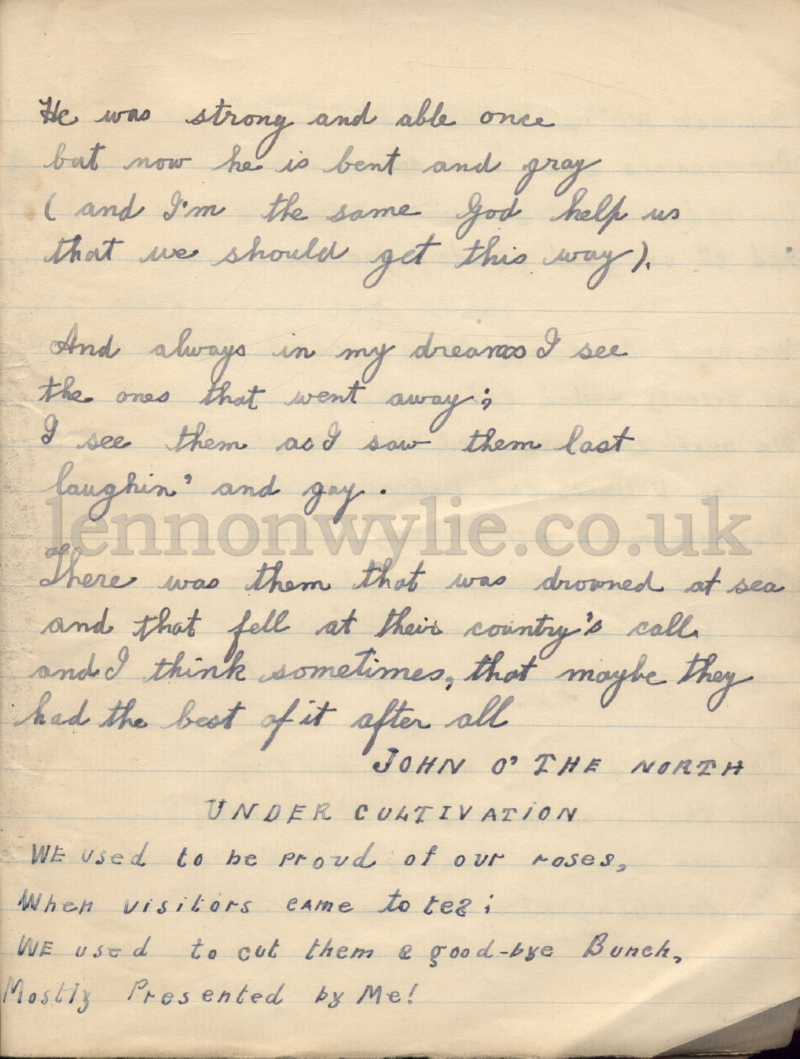 He was strong and able once
but now he is bent and gray
( and I'm the same God help us
that we should get this way ).
And always in my dreams I see
the ones that went away;
I see them as I saw them last
laughin' and gay.
lennonwylie.co.uk
There was them that was drowned at sea
and that fell at their country's call
and I think sometimes, that maybe they
had the best of it after all
JOHN O' THE NORTH
UNDER CULTIVATION
WE used to be proud of our roses,
When visitors came to tea;
WE used to cut them a good-bye Bunch,
Mostly Presented by Me!